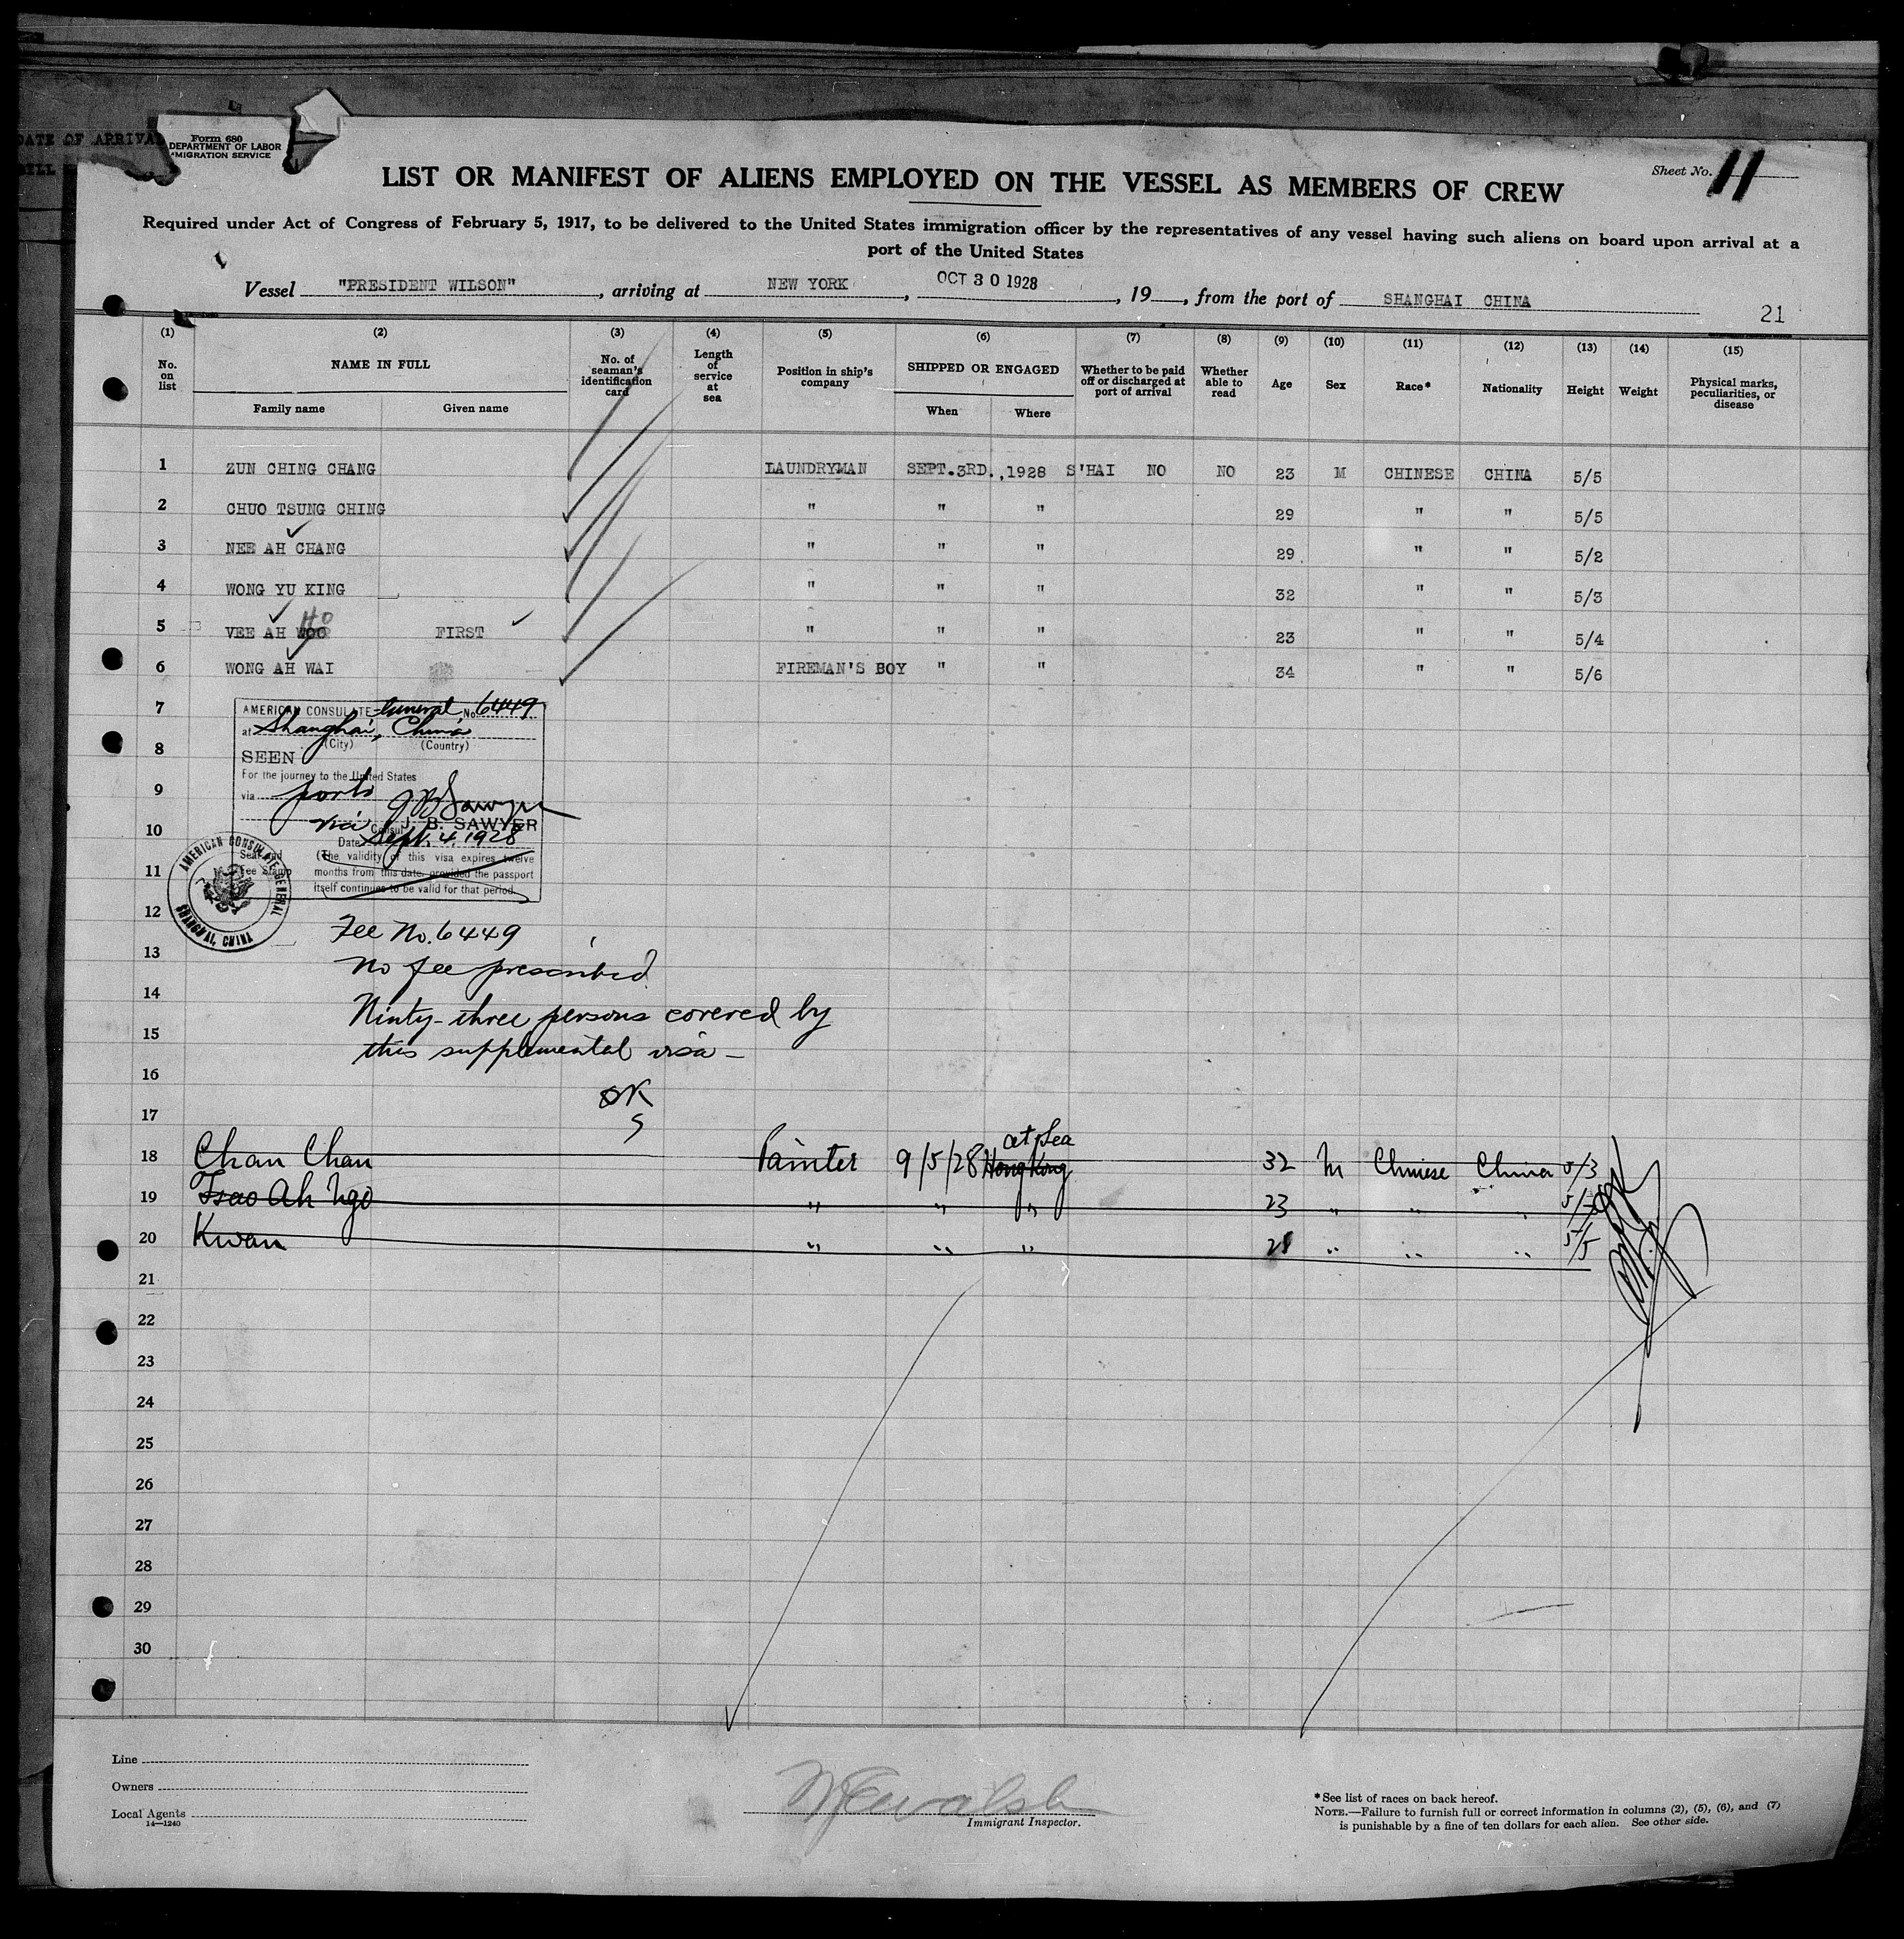 DATE OF ARRIVAL
Form 680
DEPARTMENT OF LABOR
MIGRATION SERVICE
Sheet No. 11
LIST OR MANIFEST OF ALIENS EMPLOYED ON THE VESSEL AS MEMBERS OF CREW
Required under Act of Congress of February 5, 1917, to be delivered to the United States immigration officer by the representatives of any vessel having such aliens on board upon arrival at a
port of the United States
Vessel "PRESIDENT WILSON", arriving at NEW YORK, OCT 30 1928, 19, from the port of SHANGHAI CHINA
21
(1) (2) (3) (4) (5) (6) (7) (8) (9) (10) (11) (12) (13) (14) (15)
No. on list NAME IN FULL No. of seaman's identification card Length of service at sea Position in ship's company SHIPPED OR ENGAGED Whether to be paid off or discharged at port of arrival Whether able to read Age Sex Race* Nationality Height Weight Physical marks, peculiarities, or disease
Family name Given name When Where
1 ZUN CHING CHANG LAUNDRYMAN SEPT.3RD.,1928 S'HAI NO NO 23 M CHINESE CHINA 5/5
2 CHUO TSUNG CHING " " " 29 " " 5/5
3 NEE AH CHANG " " " 29 " " 5/2
4 WONG YU KING " " " 32 " " 5/3
Ho
5 VEE AH WOO FIRST " " " 23 " " 5/4
6 WONG AH WAI FIREMAN'S BOY " " 34 " " 5/6
7 AMERICAN CONSULATE General No. 6449
at Shanghai, China
(City) (Country)
8 SEEN
For the journey to the United States
9 via ports
J B Sawyer
10 Vice Consul J. B. SAWYER
Date Sept. 4, 1928
Seal and Fee Stamp
(The validity of this visa expires twelve
11 months from this date, provided the passport
itself continues to be valid for that period.
AMERICAN CONSULATE GENERAL
SHANGHAI, CHINA
12 Fee No. 6449
13 No fee prescribed
14 Ninty-three persons covered by
15 this supplemental visa -
16 OK
17 S
at Sea
18 Chan Chan Painter 9/5/28 Hong Kong 32 M Chinese China 5/3
19 Tsao Ah Ngo " " " 23 " " "
20 Kwan " " " " " " 5/5
21
22
23
24
25
26
27
28
29
30
Line
Owners
Local Agents
14—1240
Walsh
Immigrant Inspector.
*See list of races on back hereof.
NOTE.—Failure to furnish full or correct information in columns (2), (5), (6), and (7)
is punishable by a fine of ten dollars for each alien. See other side.